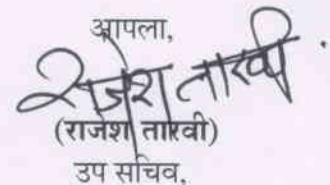 आपला,
राजेश तारवी
(राजेश तारवी)
उप सचिव,